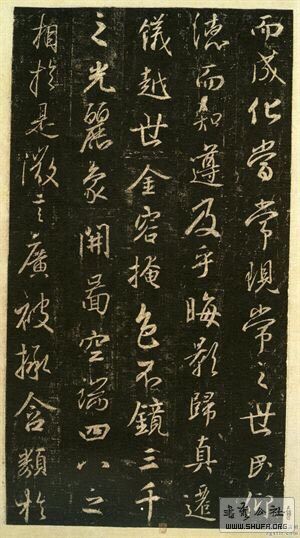 而成化當常現常之世民仰
德而知遵及乎晦影歸真遷
儀越世金容掩色不鏡三千
之光麗象開圖空端四八之
相於是微言廣被拯含類於
書藝公社
WWW.SHUFA.ORG